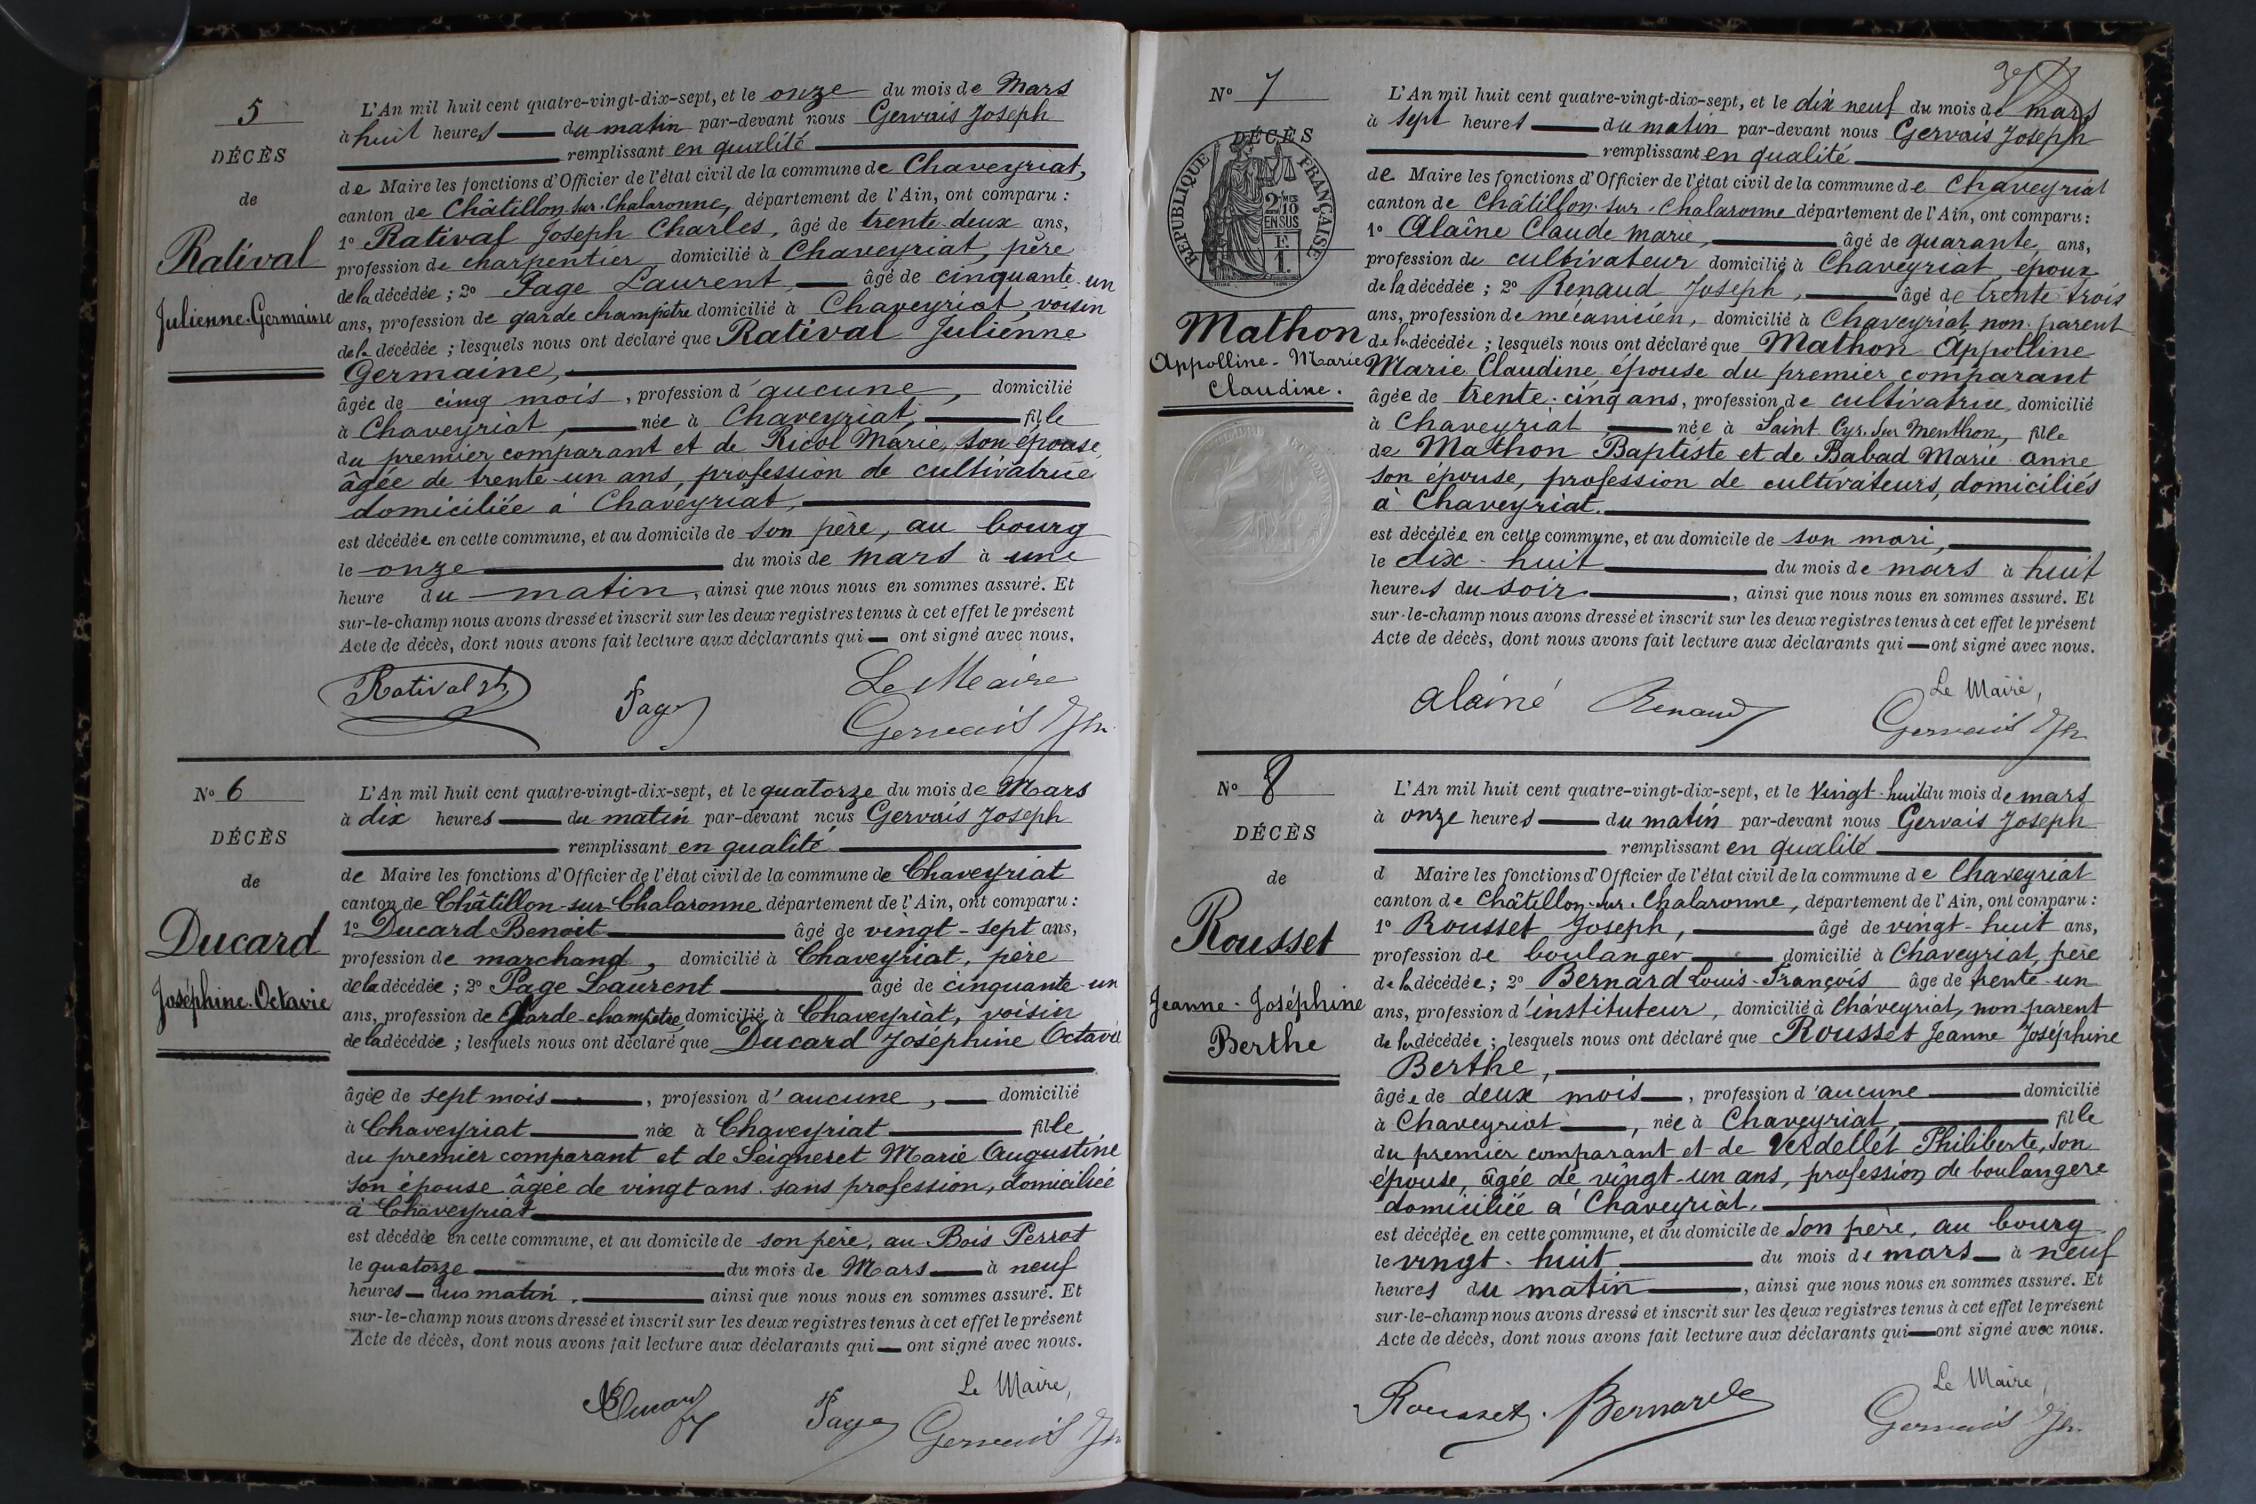 5
DÉCÈS
de
Ratival
Julienne-Germaine
L'An mil huit cent quatre-vingt-dix-sept, et le onze du mois de Mars
à huit heures du matin par-devant nous Gervais Joseph
remplissant en qualité
de Maire les fonctions d'Officier de l'état civil de la commune de Chaveyriat,
canton de Châtillon-sur-Chalaronne, département de l'Ain, ont comparu :
1º Ratival Joseph Charles, âgé de trente-deux ans,
profession de charpentier domicilié à Chaveyriat, père
de la décédée ; 2º Page Laurent, âgé de cinquante-un
ans, profession de garde champêtre domicilié à Chaveyriat, voisin
de la décédée ; lesquels nous ont déclaré que Ratival Julienne
Germaine,
âgée de cinq mois, profession d'aucune, domicilié
à Chaveyriat, née à Chaveyriat, fille
du premier comparant et de Ricol Marie, son épouse,
âgée de trente-un ans, profession de cultivatrice
domiciliée à Chaveyriat,
est décédée en cette commune, et au domicile de son père, au bourg
le onze du mois de mars à une
heure du matin, ainsi que nous nous en sommes assuré. Et
sur-le-champ nous avons dressé et inscrit sur les deux registres tenus à cet effet le présent
Acte de décès, dont nous avons fait lecture aux déclarants qui ont signé avec nous.
Ratival Page Le Maire
Gervais Jh
Nº 6
DÉCÈS
de
Ducard
Joséphine-Octavie
L'An mil huit cent quatre-vingt-dix-sept, et le quatorze du mois de Mars
à dix heures du matin par-devant nous Gervais Joseph
remplissant en qualité
de Maire les fonctions d'Officier de l'état civil de la commune de Chaveyriat
canton de Châtillon-sur-Chalaronne département de l'Ain, ont comparu :
1º Ducard Benoit âgé de vingt-sept ans,
profession de marchand, domicilié à Chaveyriat, père
de la décédée ; 2º Page Laurent âgé de cinquante-un
ans, profession de Garde-champêtre, domicilié à Chaveyriat, voisin
de la décédée ; lesquels nous ont déclaré que Ducard Joséphine Octavie
âgée de sept mois, profession d'aucune, domicilié
à Chaveyriat née à Chaveyriat fille
du premier comparant et de Seigneret Marie Augustine
son épouse âgée de vingt ans sans profession, domiciliée
à Chaveyriat
est décédée en cette commune, et au domicile de son père, au Bois Perrot
le quatorze du mois de Mars à neuf
heures du matin, ainsi que nous nous en sommes assuré. Et
sur-le-champ nous avons dressé et inscrit sur les deux registres tenus à cet effet le présent
Acte de décès, dont nous avons fait lecture aux déclarants qui ont signé avec nous.
Le Maire,
Page Gervais Jh
Nº 7
DÉCÈS
RÉPUBLIQUE FRANÇAISE
2/10
EN SUS
Mathon
Appolline-Marie
Claudine.
L'An mil huit cent quatre-vingt-dix-sept, et le dix neuf du mois de mars
à sept heures du matin par-devant nous Gervais Joseph
remplissant en qualité
de Maire les fonctions d'Officier de l'état civil de la commune de Chaveyriat
canton de Châtillon-sur-Chalaronne département de l'Ain, ont comparu :
1º Alaîne Claude Marie, âgé de quarante, ans,
profession de cultivateur domicilié à Chaveyriat, époux
de la décédée ; 2º Renaud Joseph, âgé de trente-trois
ans, profession de mécanicien, domicilié à Chaveyriat, non-parent
de la décédée ; lesquels nous ont déclaré que Mathon Appolline
Marie Claudine, épouse du premier comparant
âgée de trente-cinq ans, profession de cultivatrice, domicilié
à Chaveyriat née à Saint-Cyr-sur Menthon, fille
de Mathon Baptiste et de Babad Marie Anne
son épouse, profession de cultivateurs, domiciliés
à Chaveyriat.
est décédée en cette commune, et au domicile de son mari,
le dix-huit du mois de mars à huit
heures du soir, ainsi que nous nous en sommes assuré. Et
sur-le-champ nous avons dressé et inscrit sur les deux registres tenus à cet effet le présent
Acte de décès, dont nous avons fait lecture aux déclarants qui ont signé avec nous.
Le Maire,
Alainé Renaud Gervais Jh
Nº 8
DÉCÈS
de
Rousset
Jeanne-Joséphine
Berthe
L'An mil huit cent quatre-vingt-dix-sept, et le vingt-huit du mois de mars
à onze heures du matin par-devant nous Gervais Joseph
remplissant en qualité
d Maire les fonctions d'Officier de l'état civil de la commune de Chaveyriat
canton de Châtillon-sur-Chalaronne, département de l'Ain, ont comparu :
1º Rousset Joseph, âgé de vingt-huit ans,
profession de boulanger domicilié à Chaveyriat, père
de la décédée ; 2º Bernard Louis-François âgé de trente-un
ans, profession d'instituteur, domicilié à Chaveyriat, non parent
de la décédée ; lesquels nous ont déclaré que Rousset Jeanne Joséphine
Berthe,
âgée de deux mois, profession d'aucune domicilié
à Chaveyriat, née à Chaveyriat, fille
du premier comparant et de Verdellet Philiberte, son
épouse, âgée de vingt-un ans, profession de boulangère
domiciliée à Chaveyriat,
est décédée en cette commune, et au domicile de son père, au bourg
le vingt-huit du mois de mars à neuf
heures du matin, ainsi que nous nous en sommes assuré. Et
sur-le-champ nous avons dressé et inscrit sur les deux registres tenus à cet effet le présent
Acte de décès, dont nous avons fait lecture aux déclarants qui ont signé avec nous.
Le Maire,
Rousset Bernard Gervais Jh